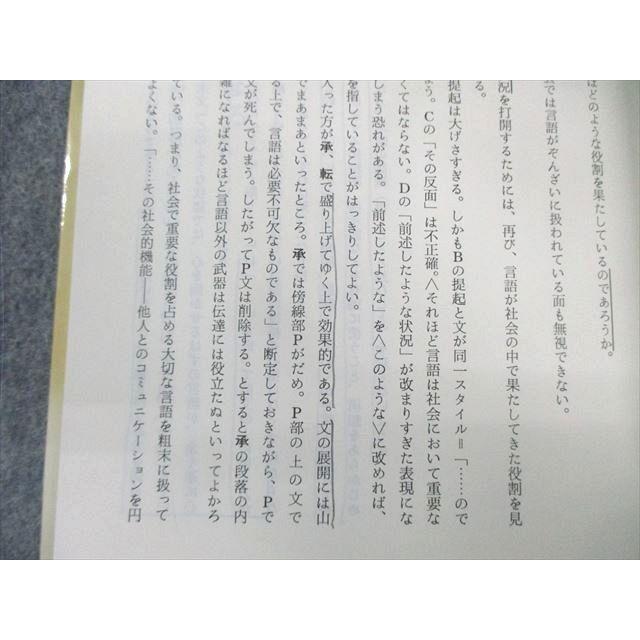 はどのような役割を果たしているのであろうか。
会では言語がぞんざいに扱われている面も無視できない。
況を打開するためには、再び、言語が社会の中で果たしてきた役割を見
る。
提起は大げさすぎる。しかもBの提起と文が同一スタイル＝「……ので
よう。Cの「その反面」は不正確。〈それほど言語は社会において重要な
くてはならない。Dの「前述したような状況」が改まりすぎた表現にな
しまう恐れがある。「前述したような」を〈このような〉に改めれば、
を指していることがはっきりしてよい。
入った方が承、転で盛り上げてゆく上で効果的である。文の展開には山
でまあまあといったところ。承では傍線部Pがだめ。P部の上の文で
る上で、言語は必要不可欠なものである」と断定しておきながら、Pで
文が死んでしまう。したがってP文は削除する。とすると承の段落の内
雑になればなるほど言語以外の武器は伝達には役立たぬといってよかろ
ている。つまり、社会で重要な役割を占める大切な言語を粗末に扱って
よくない。「……その社会的機能――他人とのコミュニケーションを円